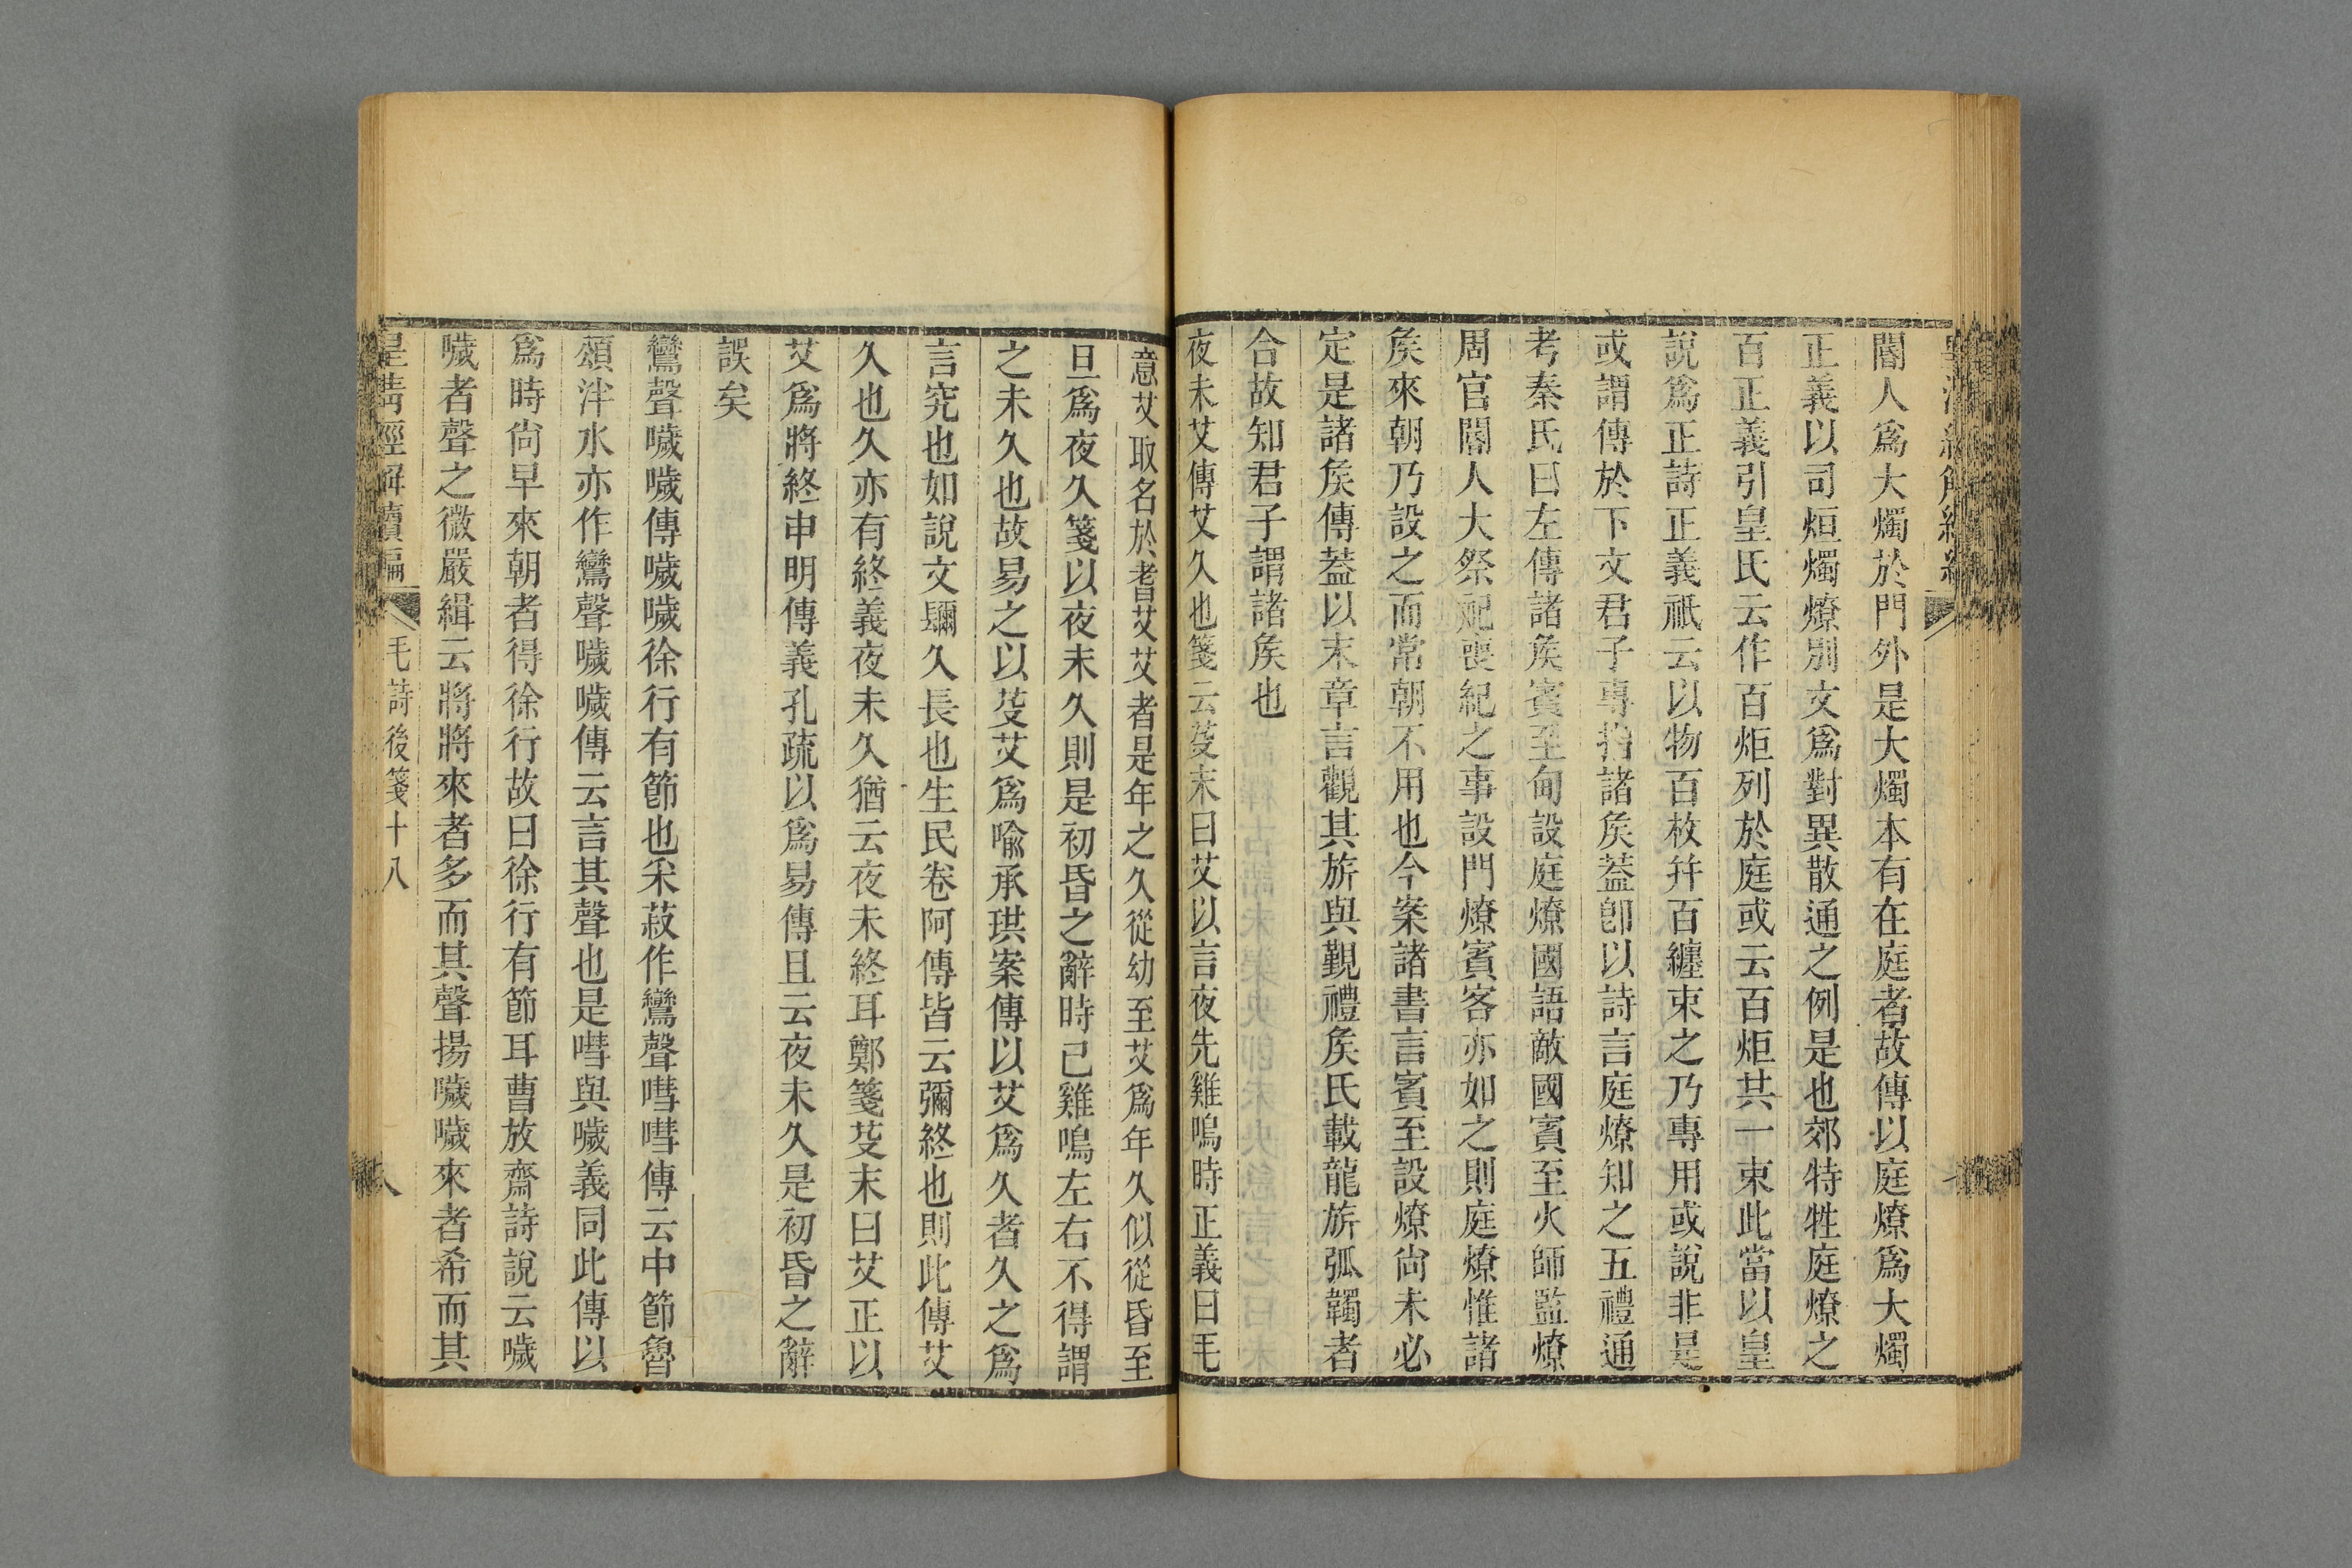 閽人爲大燭於門外是大燭本有在庭者故傳以庭燎爲大燭
正義以司烜燭燎別文爲對異散通之例是也郊特牲庭燎之
百正義引皇氏云作百炬列於庭或云百炬共一束此當以皇
說爲正詩正義祇云以物百枚幷百纏束之乃專用或說非是
或謂傳於下文君子專指諸矦蓋卽以詩言庭燎知之五禮通
考秦氏曰左傳諸矦賓至甸設庭燎國語敵國賓至火師監燎
周官閽人大祭祀喪紀之事設門燎賓客亦如之則庭燎惟諸
矦來朝乃設之而常朝不用也今案諸書言賓至設燎尙未必
定是諸矦傳蓋以末章言觀其旂與覲禮矦氏載龍旂弧韣者
合故知君子謂諸矦也
夜未艾傳艾久也箋云芟末曰艾以言夜先雞鳴時正義曰毛
意艾取名於耆艾艾者是年之久從幼至艾爲年久似從昏至
旦爲夜久箋以夜未久則是初昏之辭時已雞鳴左右不得謂
之未久也故易之以芟艾爲喩承珙案傳以艾爲久者久之爲
言究也如說文镾久長也生民卷阿傳皆云彌終也則此傳艾
久也久亦有終義夜未久猶云夜未終耳鄭箋芟末曰艾正以
艾爲將終申明傳義孔疏以爲易傳且云夜未久是初昏之辭
誤矣
鸞聲噦噦傳噦噦徐行有節也采菽作鸞聲嘒嘒傳云中節魯
頌泮水亦作鸞聲噦噦傳云言其聲也是嘒與噦義同此傳以
爲時尙早來朝者得徐行故曰徐行有節耳曹放齋詩說云噦
噦者聲之微嚴緝云將將來者多而其聲揚噦噦來者希而其
皇淸經解續編 毛詩後箋十八 八